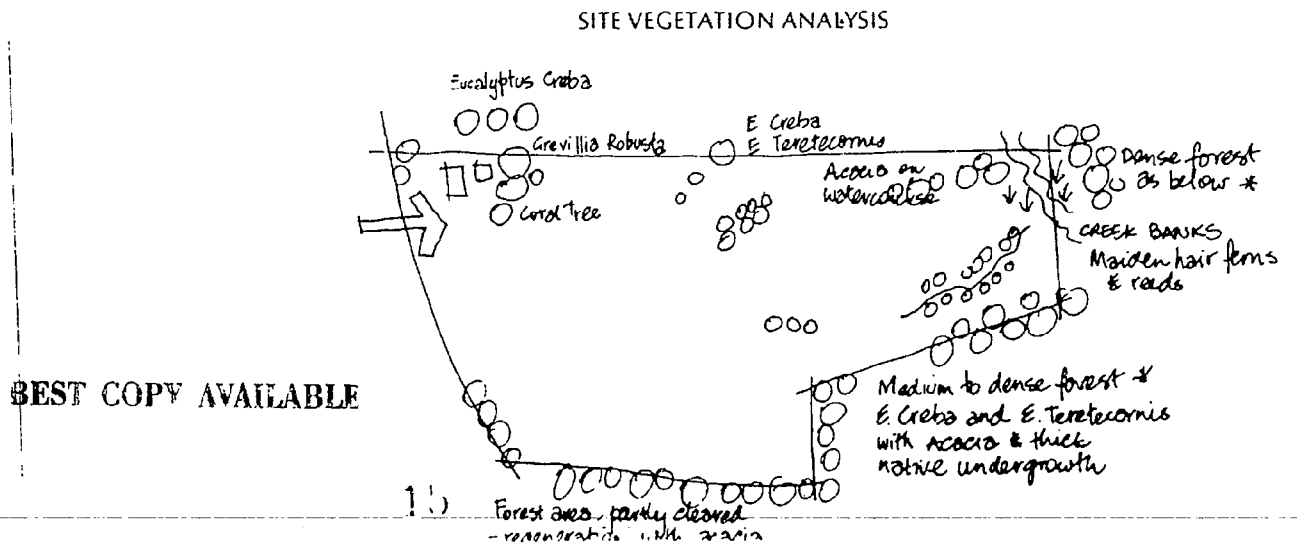 SITE VEGETATION ANALYSIS
Eucalyptus Creba
Grevillia Robusta
E Creba
E Teretecornis
Coral Tree
Acacia on
watercourse
Dense forest
as below *
CREEK BANKS
Maiden hair ferns
& reeds
BEST COPY AVAILABLE
Medium to dense forest *
E. Creba and E. Teretecornis
with Acacia & thick
native undergrowth
Forest area, partly cleared
- regeneration with acacia